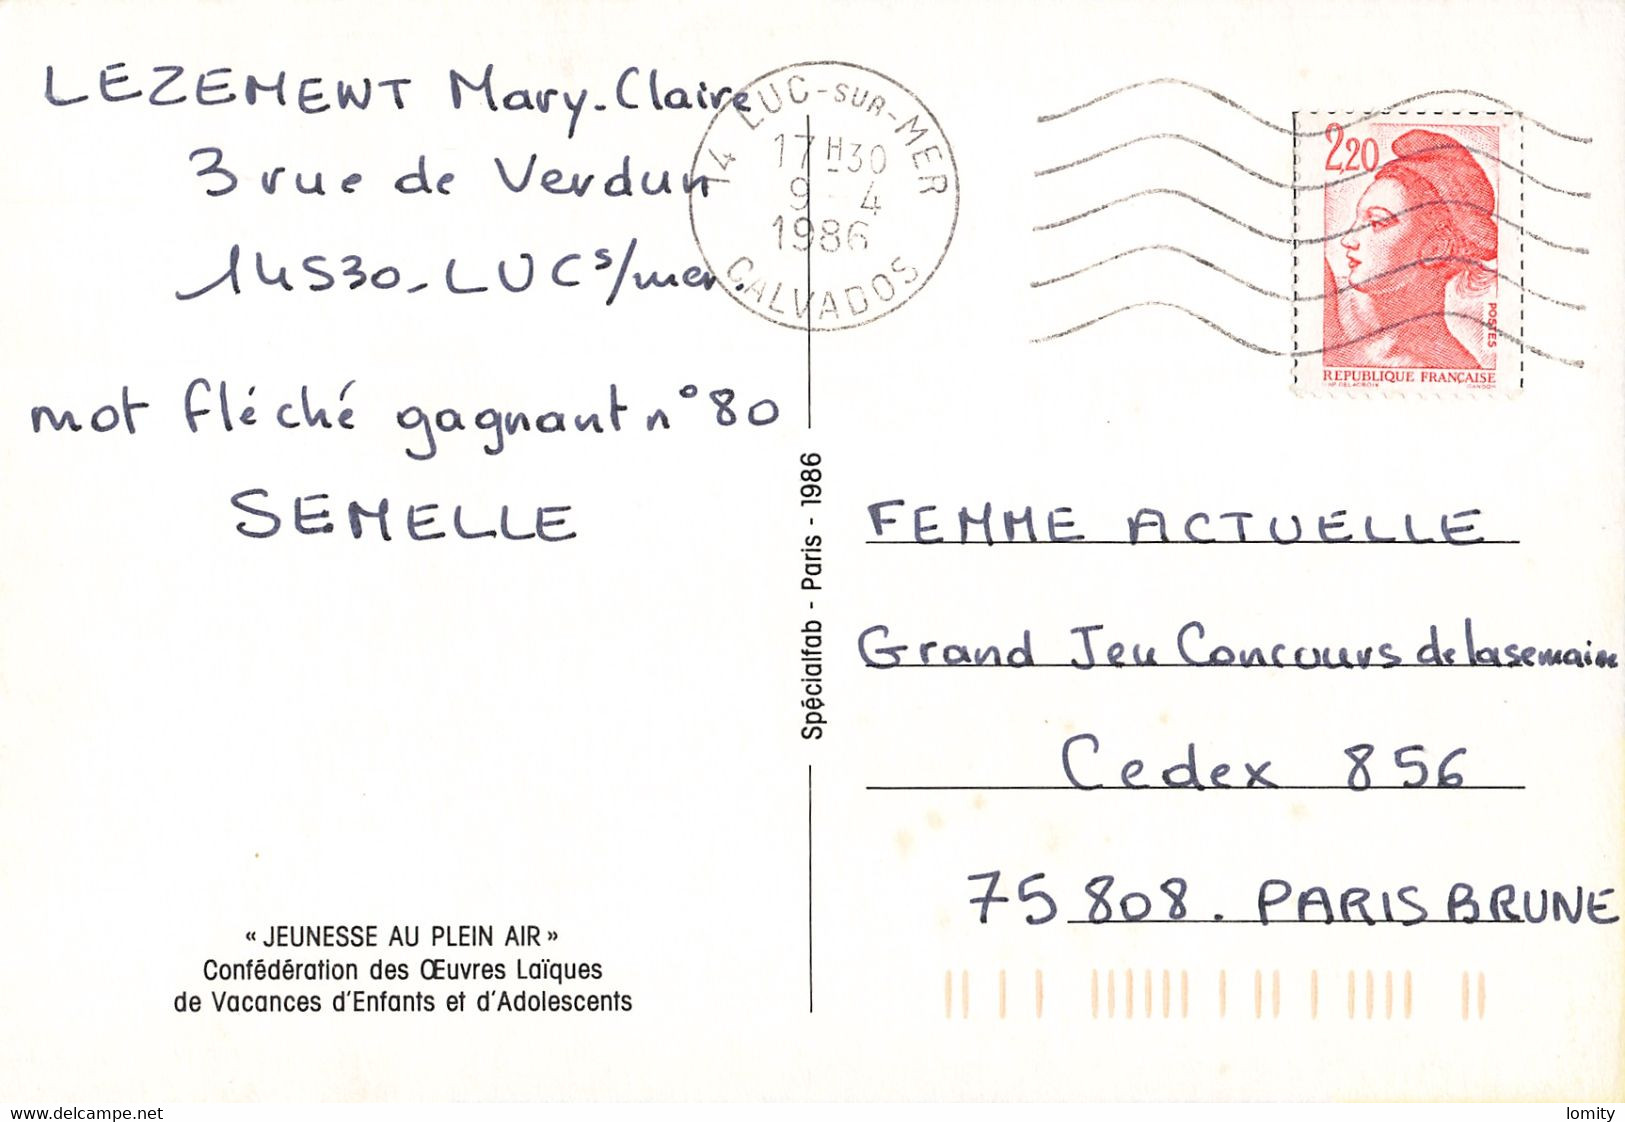 LEZEMENT Mary-Claire
3 rue de Verdun
14530-LUC s/mer.
mot fléché gagnant n°80
SEMELLE
« JEUNESSE AU PLEIN AIR »
Confédération des Œuvres Laïques
de Vacances d'Enfants et d'Adolescents
Spécialfab - Paris - 1986
14 LUC-SUR-MER
17H30
9-4
1986
CALVADOS
2,20
POSTES
REPUBLIQUE FRANÇAISE
D'AP DELACROIX GANDON
FEMME ACTUELLE
Grand Jeu Concours de la semaine
Cedex 856
75 808. PARIS BRUNE
delcampe.net
lomity